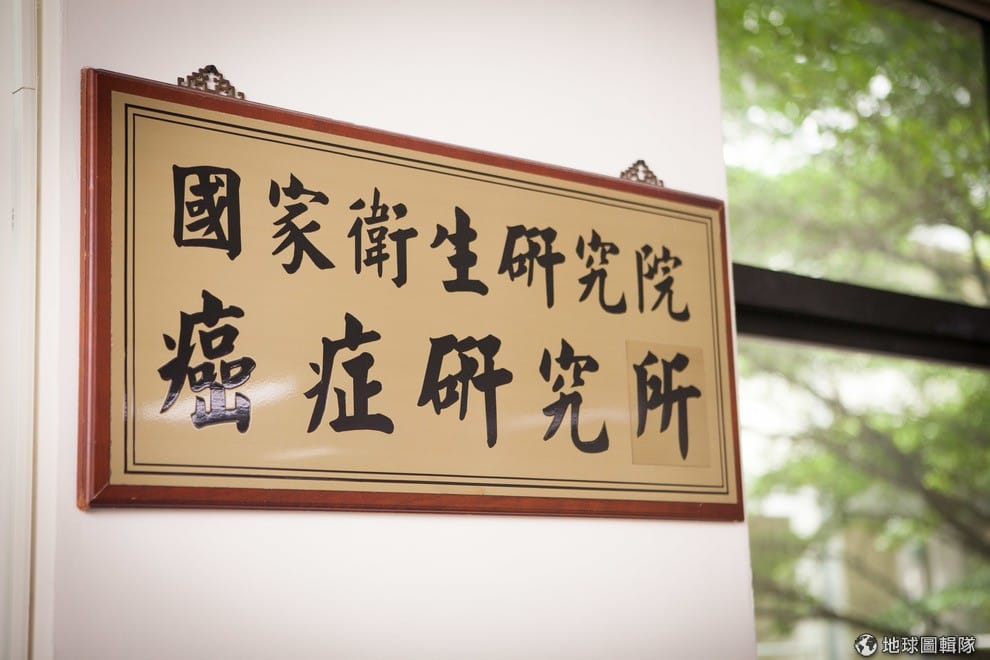 國家衛生研究院
癌症研究所
地球圖輯隊